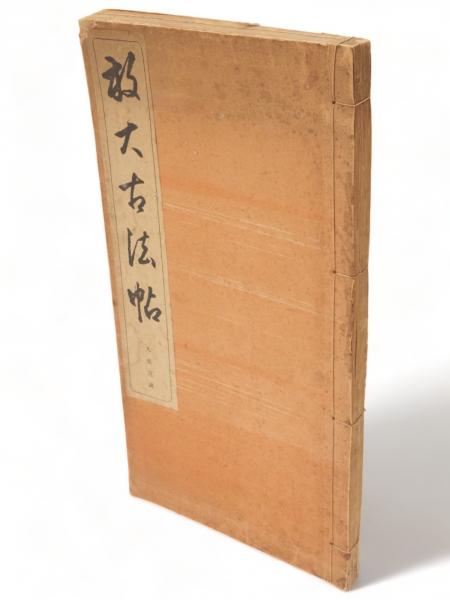 放大古法帖